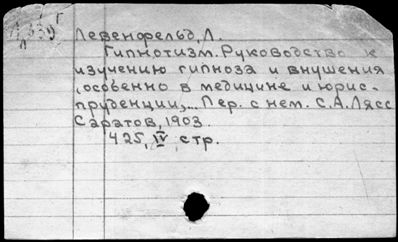 Левенфельд, Л.
Гипнотизм. Руководство к
изучению гипноза и внушения
, особенно в медицине и юрис-
пруденции,... Пер. с нем. С.А. Лясс
Саратов, 1903.
425, IV стр.